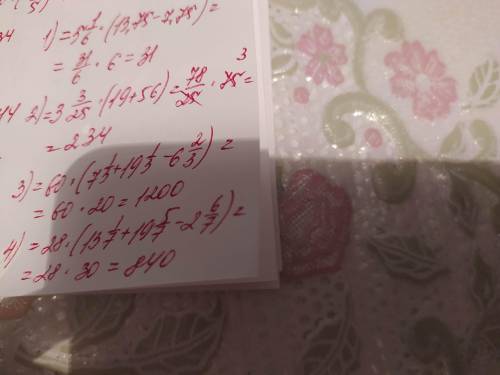 5)
34 1) = 5 1/6 · (13,75 - 7,75) =
= 31/6 · 6 = 31
14 2) = 3 3/25 · (19 + 56) = 78/25 · 75 = 3
= 234
3) = 60 · (7 1/3 + 19 1/3 - 6 2/3) =
= 60 · 20 = 1200
4) = 28 · (13 1/7 + 19 5/7 - 2 6/7) =
= 28 · 30 = 840